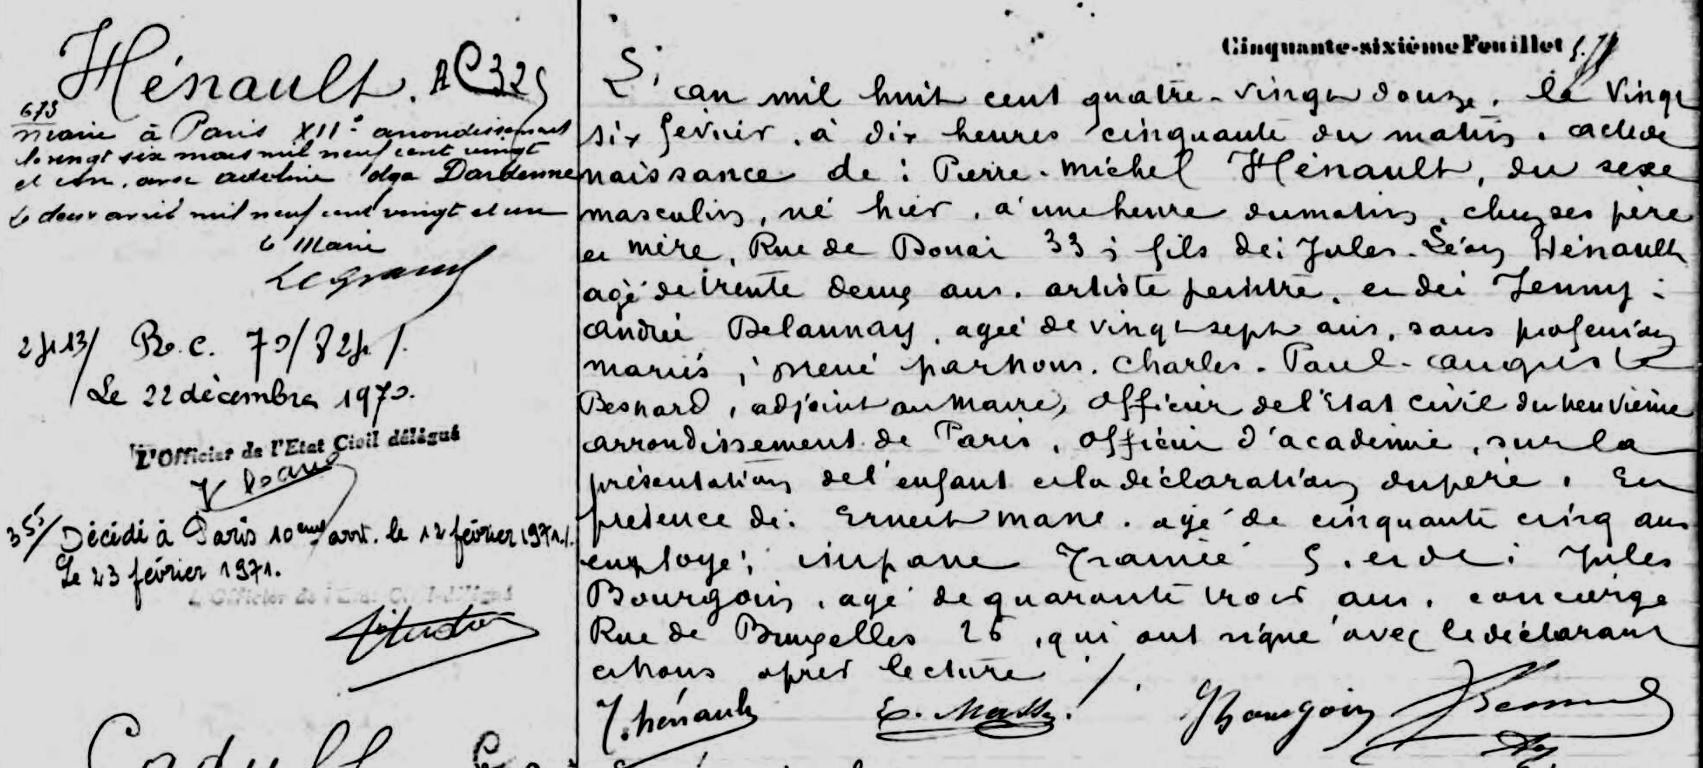 Cinquante-sixième Feuillet
Hénault. AC 325
673
marié à Paris XIIe arrondissement
le vingt six mars mil neuf cent vingt
et un. avec Adeline Olga Dardenne
le deux avril mil neuf cent vingt et un
le Maire
Legrand
R.C. 70/824/.
Le 22 décembre 1970.
L'Officier de l'Etat Civil délégué
35/ Décédé à Paris 10ème arrt. le 12 février 1971./.
Le 23 février 1971.
L'Officier de l'Etat Civil délégué
L'an mil huit cent quatre-vingt douze, le vingt
six février, à dix heures cinquante du matin. acte de
naissance de : Pierre-Michel Hénault, du sexe
masculin, né hier, à une heure du matin, chez ses père
et mère, Rue de Douai 33 ; fils de : Jules-Léon Hénault
agé de trente deux ans. artiste peintre, et de : Jenny-
andrée Delaunay, agée de vingt sept ans, sans profession
mariés ; Dressé par nous. Charles-Paul-auguste
Besnard, adjoint au Maire, officier de l'Etat civil du neuvième
arrondissement de Paris, officier d'académie, sur la
présentation de l'enfant et la déclaration du père. En
présence de : Ernest Masse. agé de cinquante cinq ans
employé ; impasse 5. et de : Jules
Bourgoin, agé de quarante trois ans. concierge
Rue de Bruxelles 26, qui ont signé avec le déclarant
et nous après lecture ./.
J. hénault E. Masse. J Bourgoin Besnard